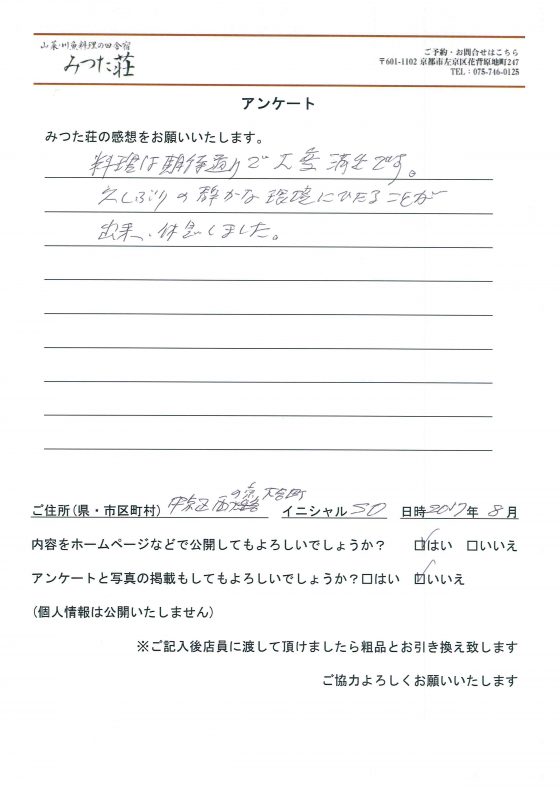 山菜・川魚料理の田舎宿
みつた荘
ご予約・お問合せはこちら
〒601-1102 京都市左京区花背原地町247
TEL：075-746-0125
アンケート
みつた荘の感想をお願いいたします。
料理は期待通りで大変満足です。
久しぶりの静かな環境にひたることが
出来、休息しました。
ご住所(県・市区町村) 中京区西の京 イニシャル SO 日時 2017年 8月
内容をホームページなどで公開してもよろしいでしょうか？ ☑はい □いいえ
アンケートと写真の掲載もしてもよろしいでしょうか？□はい ☑いいえ
(個人情報は公開いたしません)
※ご記入後店員に渡して頂けましたら粗品とお引き換え致します
ご協力よろしくお願いいたします